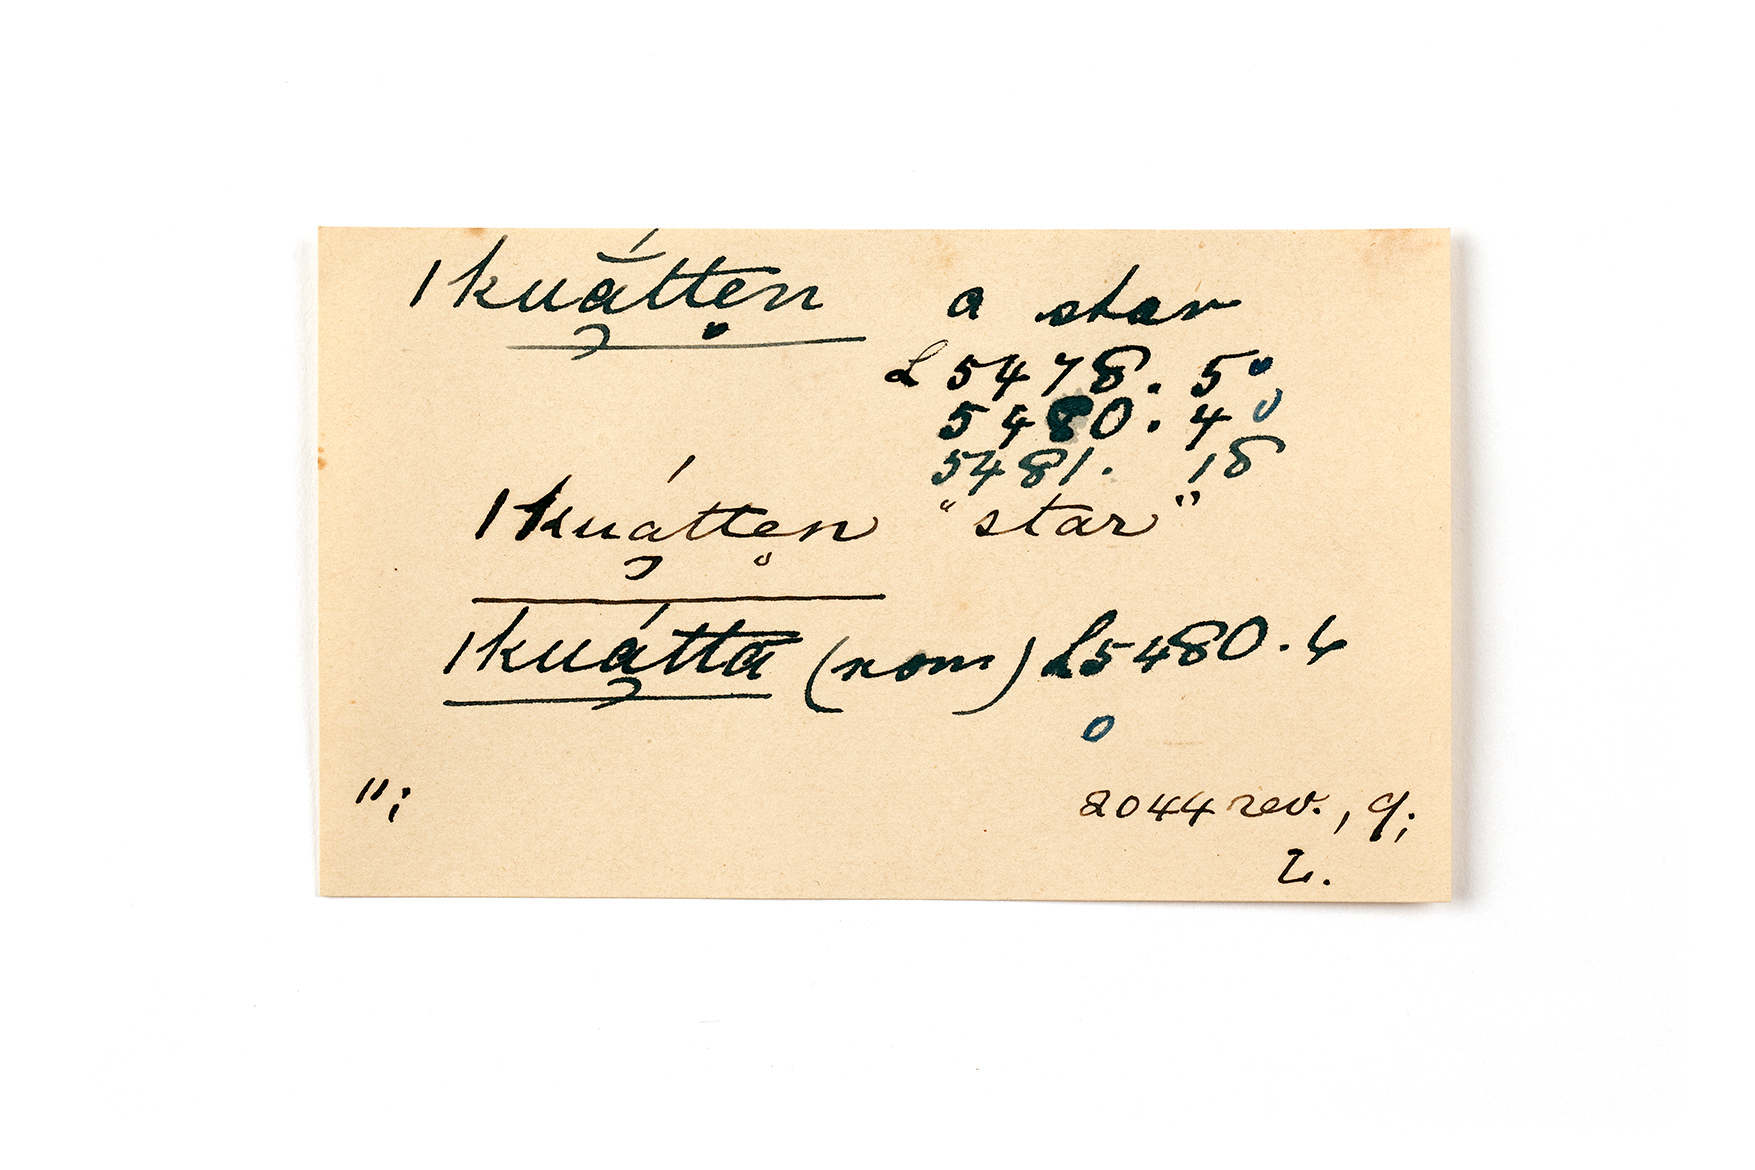 ǀkuá̯tten̥ a star
L 5478. 5°
5480. 4°
5481. 18
ǀkuá̯tten̥ "star"
ǀkuá̯ttā (nom) L5480.4
o
";
2044 rev., 9;
L.